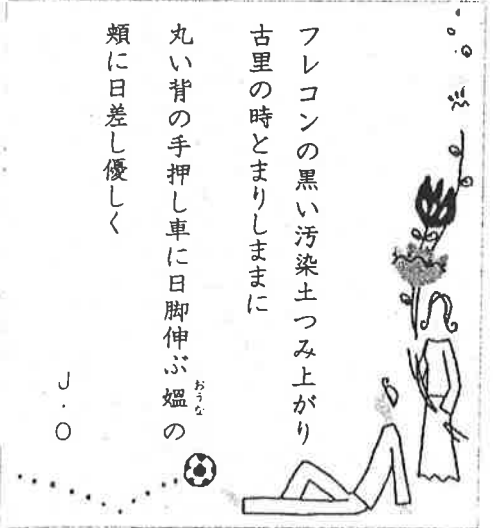 フレコンの黒い汚染土つみ上がり
古里の時とまりしままに
丸い背の手押し車に日脚伸ぶ媼の
おうな
頬に日差し優しく
J.O